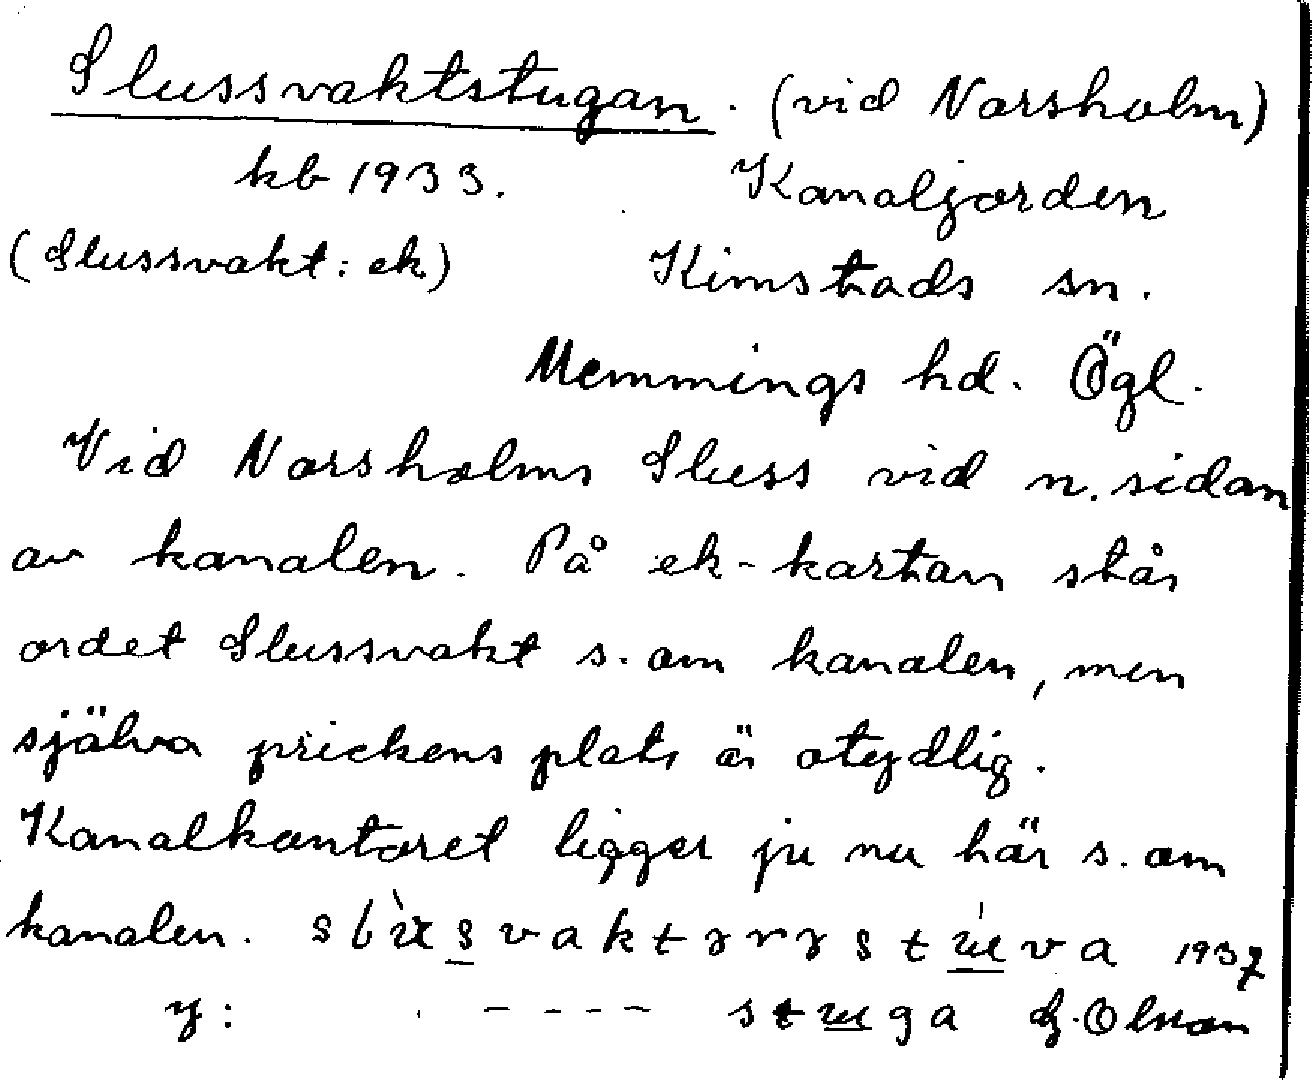 Slussvaktstugan. (vid Norsholm)
kb 1933. Kanaljorden
(Slussvakt: ek) Kimstads sn.
Memmings hd. Ögl.
Vid Norsholms Sluss vid n. sidan
av kanalen. På ek-kartan står
ordet Slussvakt s. om kanalen, men
själva prickens plats är otydlig.
Kanalkontoret ligger ju nu här s. om
kanalen. 1937
y: - - - - stuga G. Olsson